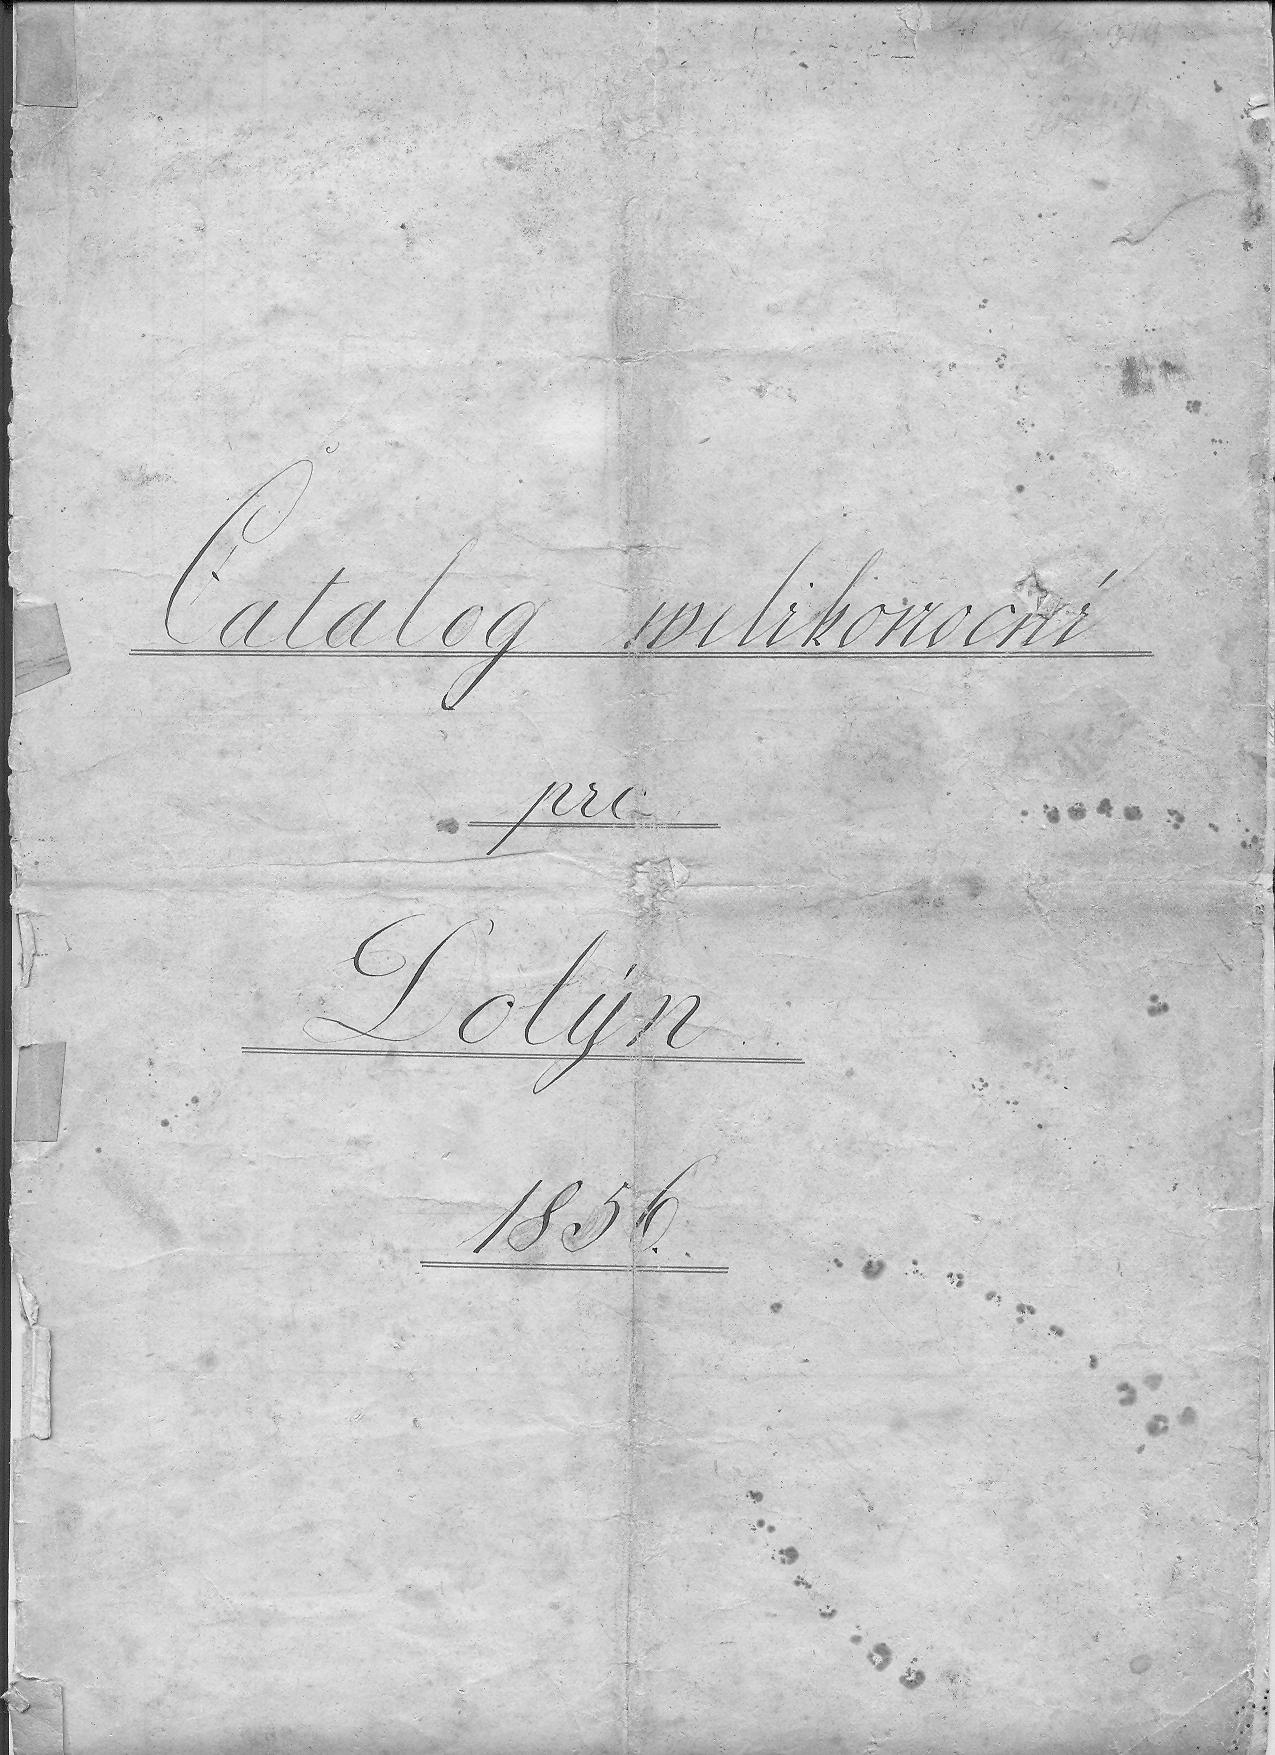 Catalog welikonocní
pro
Dolýn
1856.